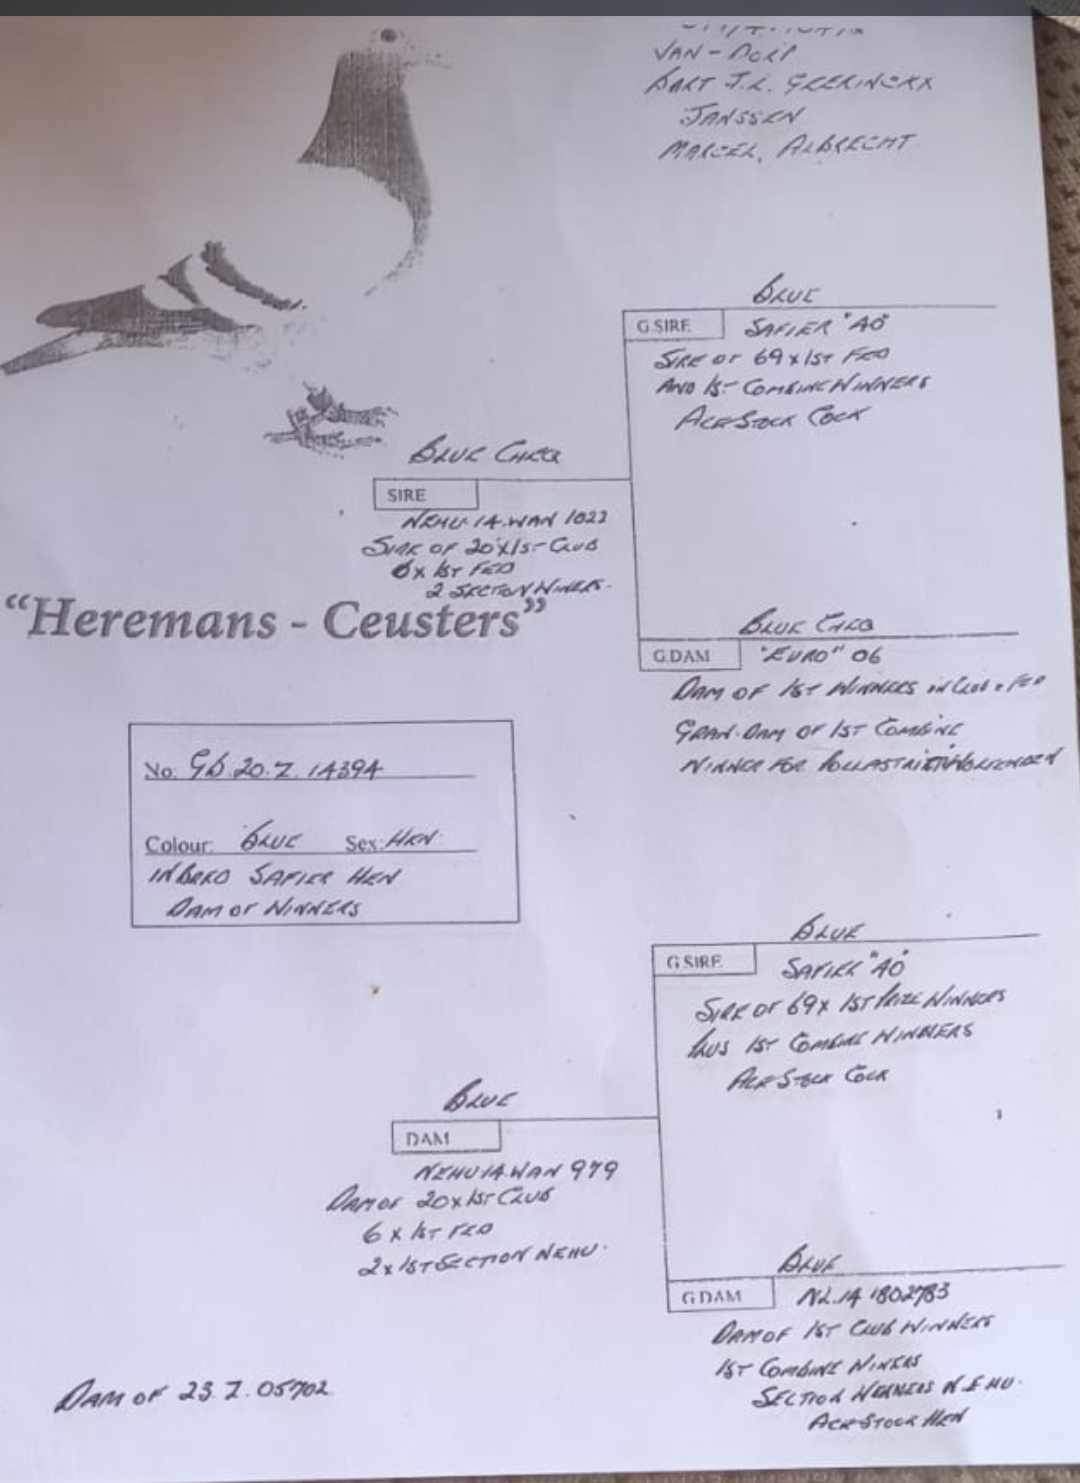 VAN-DORP
BART J.L. GEERINCKX
JANSSEN
MARCEL, ALBRECHT
BLUE
G.SIRE SAFIER "AO"
SIRE OF 69 x 1ST FED
AND 1ST COMBINE WINNERS
ACE STOCK COCK
BLUE CHEQ
SIRE
NEHU 14.WAN 1022
SIRE OF 20 X 1ST CLUB
6 x 1ST FED
2 SECTION WINERS.
"Heremans - Ceusters"
BLUE CHEQ
G.DAM "EURO" 06
DAM OF 1ST WINNERS IN CLUB + FED
GRAN.DAM OF 1ST COMBINE
WINNER FOR
No. GB 20.Z.14394
Colour: BLUE Sex: HEN
INBRED SAFIER HEN
DAM OF WINNERS
BLUE
G.SIRE SAFIER "AO"
SIRE OF 69 x 1ST PRIZE WINNERS
PLUS 1ST COMBINE WINNERS
ACE STOCK COCK
BLUE
DAM
NEHU 14.WAN 979
DAM OF 20 x 1ST CLUB
6 x 1ST FED
2 x 1ST SECTION NEHU.
BLUE
G.DAM NL.14 1802783
DAM OF 1ST CLUB WINNERS
1ST COMBINE WINERS
SECTION WINNERS N.E.HU.
ACE STOCK HEN
DAM OF 23.Z.05702